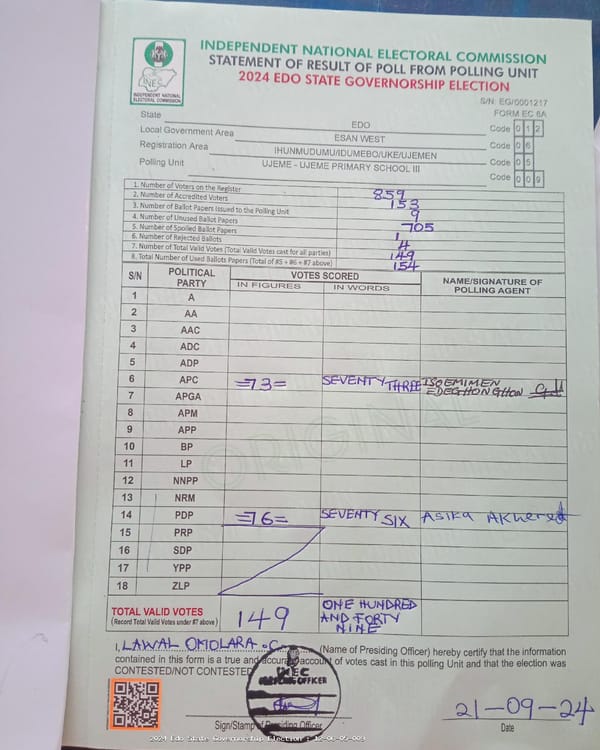 INDEPENDENT NATIONAL ELECTORAL COMMISSION
STATEMENT OF RESULT OF POLL FROM POLLING UNIT
2024 EDO STATE GOVERNORSHIP ELECTION
INEC
INDEPENDENT NATIONAL
ELECTORAL COMMISSION
S/N: EG/0001217
FORM EC 8A
State EDO Code 0 1 2
Local Government Area ESAN WEST Code 0 6
Registration Area IHUNMUDUMU/IDUMEBO/UKE/UJEMEN Code 0 5
Polling Unit UJEME - UJEME PRIMARY SCHOOL III Code 0 0 9
1. Number of Voters on the Register 859
2. Number of Accredited Voters 153
3. Number of Ballot Papers Issued to the Polling Unit 9
4. Number of Unused Ballot Papers 705
5. Number of Spoiled Ballot Papers 1
6. Number of Rejected Ballots 4
7. Number of Total Valid Votes (Total Valid Votes cast for all parties) 149
8. Total Number of Used Ballots Papers (Total of #5 + #6 + #7 above) 154
S/N POLITICAL PARTY VOTES SCORED NAME/SIGNATURE OF POLLING AGENT
IN FIGURES IN WORDS
1 A
2 AA
3 AAC
4 ADC
5 ADP
6 APC =73= SEVENTY THREE ISOEMIMEN EDEGHONGHON
7 APGA
8 APM
9 APP
10 BP
11 LP
12 NNPP
13 NRM
14 PDP =76= SEVENTY SIX Asika
15 PRP
16 SDP
17 YPP
18 ZLP
ORIGINAL
TOTAL VALID VOTES 149 ONE HUNDRED AND FORTY NINE
(Record Total Valid Votes under #7 above)
I, LAWAL OMOLARA .C. (Name of Presiding Officer) hereby certify that the information
contained in this form is a true and accurate account of votes cast in this polling Unit and that the election was
CONTESTED/NOT CONTESTED
INEC
PRESIDING OFFICER
Sign/Stamp of Presiding Officer
21-09-24
Date
2024 Edo State Governorship Election : 12-06-05-009